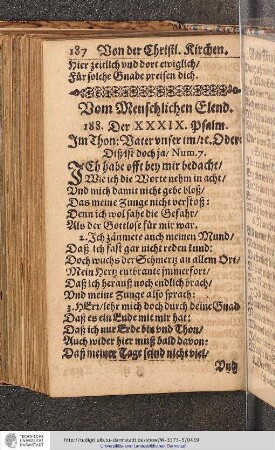 187 Von der Christl. Kirchen.
Hier zeitlich und dort ewiglich/
Für solche Gnade preisen dich.
Vom Menschlichen Elend.
188. Der XXXIX. Psalm.
Im Thon: Vater unser im/ꝛc. Oder:
Diß ist doch ja/ Num. 7.
ICh habe offt bey mir bedacht/
Wie ich die Worte nehm in acht/
Und mich damit nicht gebe bloß/
Das meine Zunge nicht verstoß:
Denn ich wol sahe die Gefahr/
Als der Gottlose für mir war.
2. Ich zäumete auch meinen Mund/
Daß ich fast gar nicht reden kund:
Doch wuchs der Schmertz an allem Ort/
Mein Hertz entbrante immerfort/
Daß ich herauß noch endlich brach/
Und meine Zunge also sprach:
3. HErr/ lehr mich doch durch deine Gnad
Daß es ein Ende mit mir hat:
Daß ich nur Erde bin und Thon/
Auch wider hier muß bald davon:
Daß meiner Tage seind nicht viel/
Und
TECHNISCHE
UNIVERSITÄT
DARMSTADT
http://tudigit.ulb.tu-darmstadt.de/show/W-3373-5/0439
Universitäts- und Landesbibliothek Darmstadt